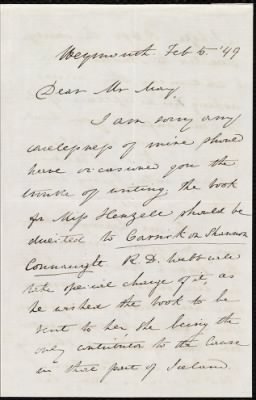 Weymouth Feb 5. '49
Dear Mr May,
I am sorry any
carelessness of mine should
have occasioned you the
trouble of writing. the book
for Miss Henzell should be
directed to Carrick on Shannon
Connaught R. D. Webb will
take special charge of it, as
he wished the book to be
sent to her, she being the
only contributor to the Cause
in that part of Ireland.